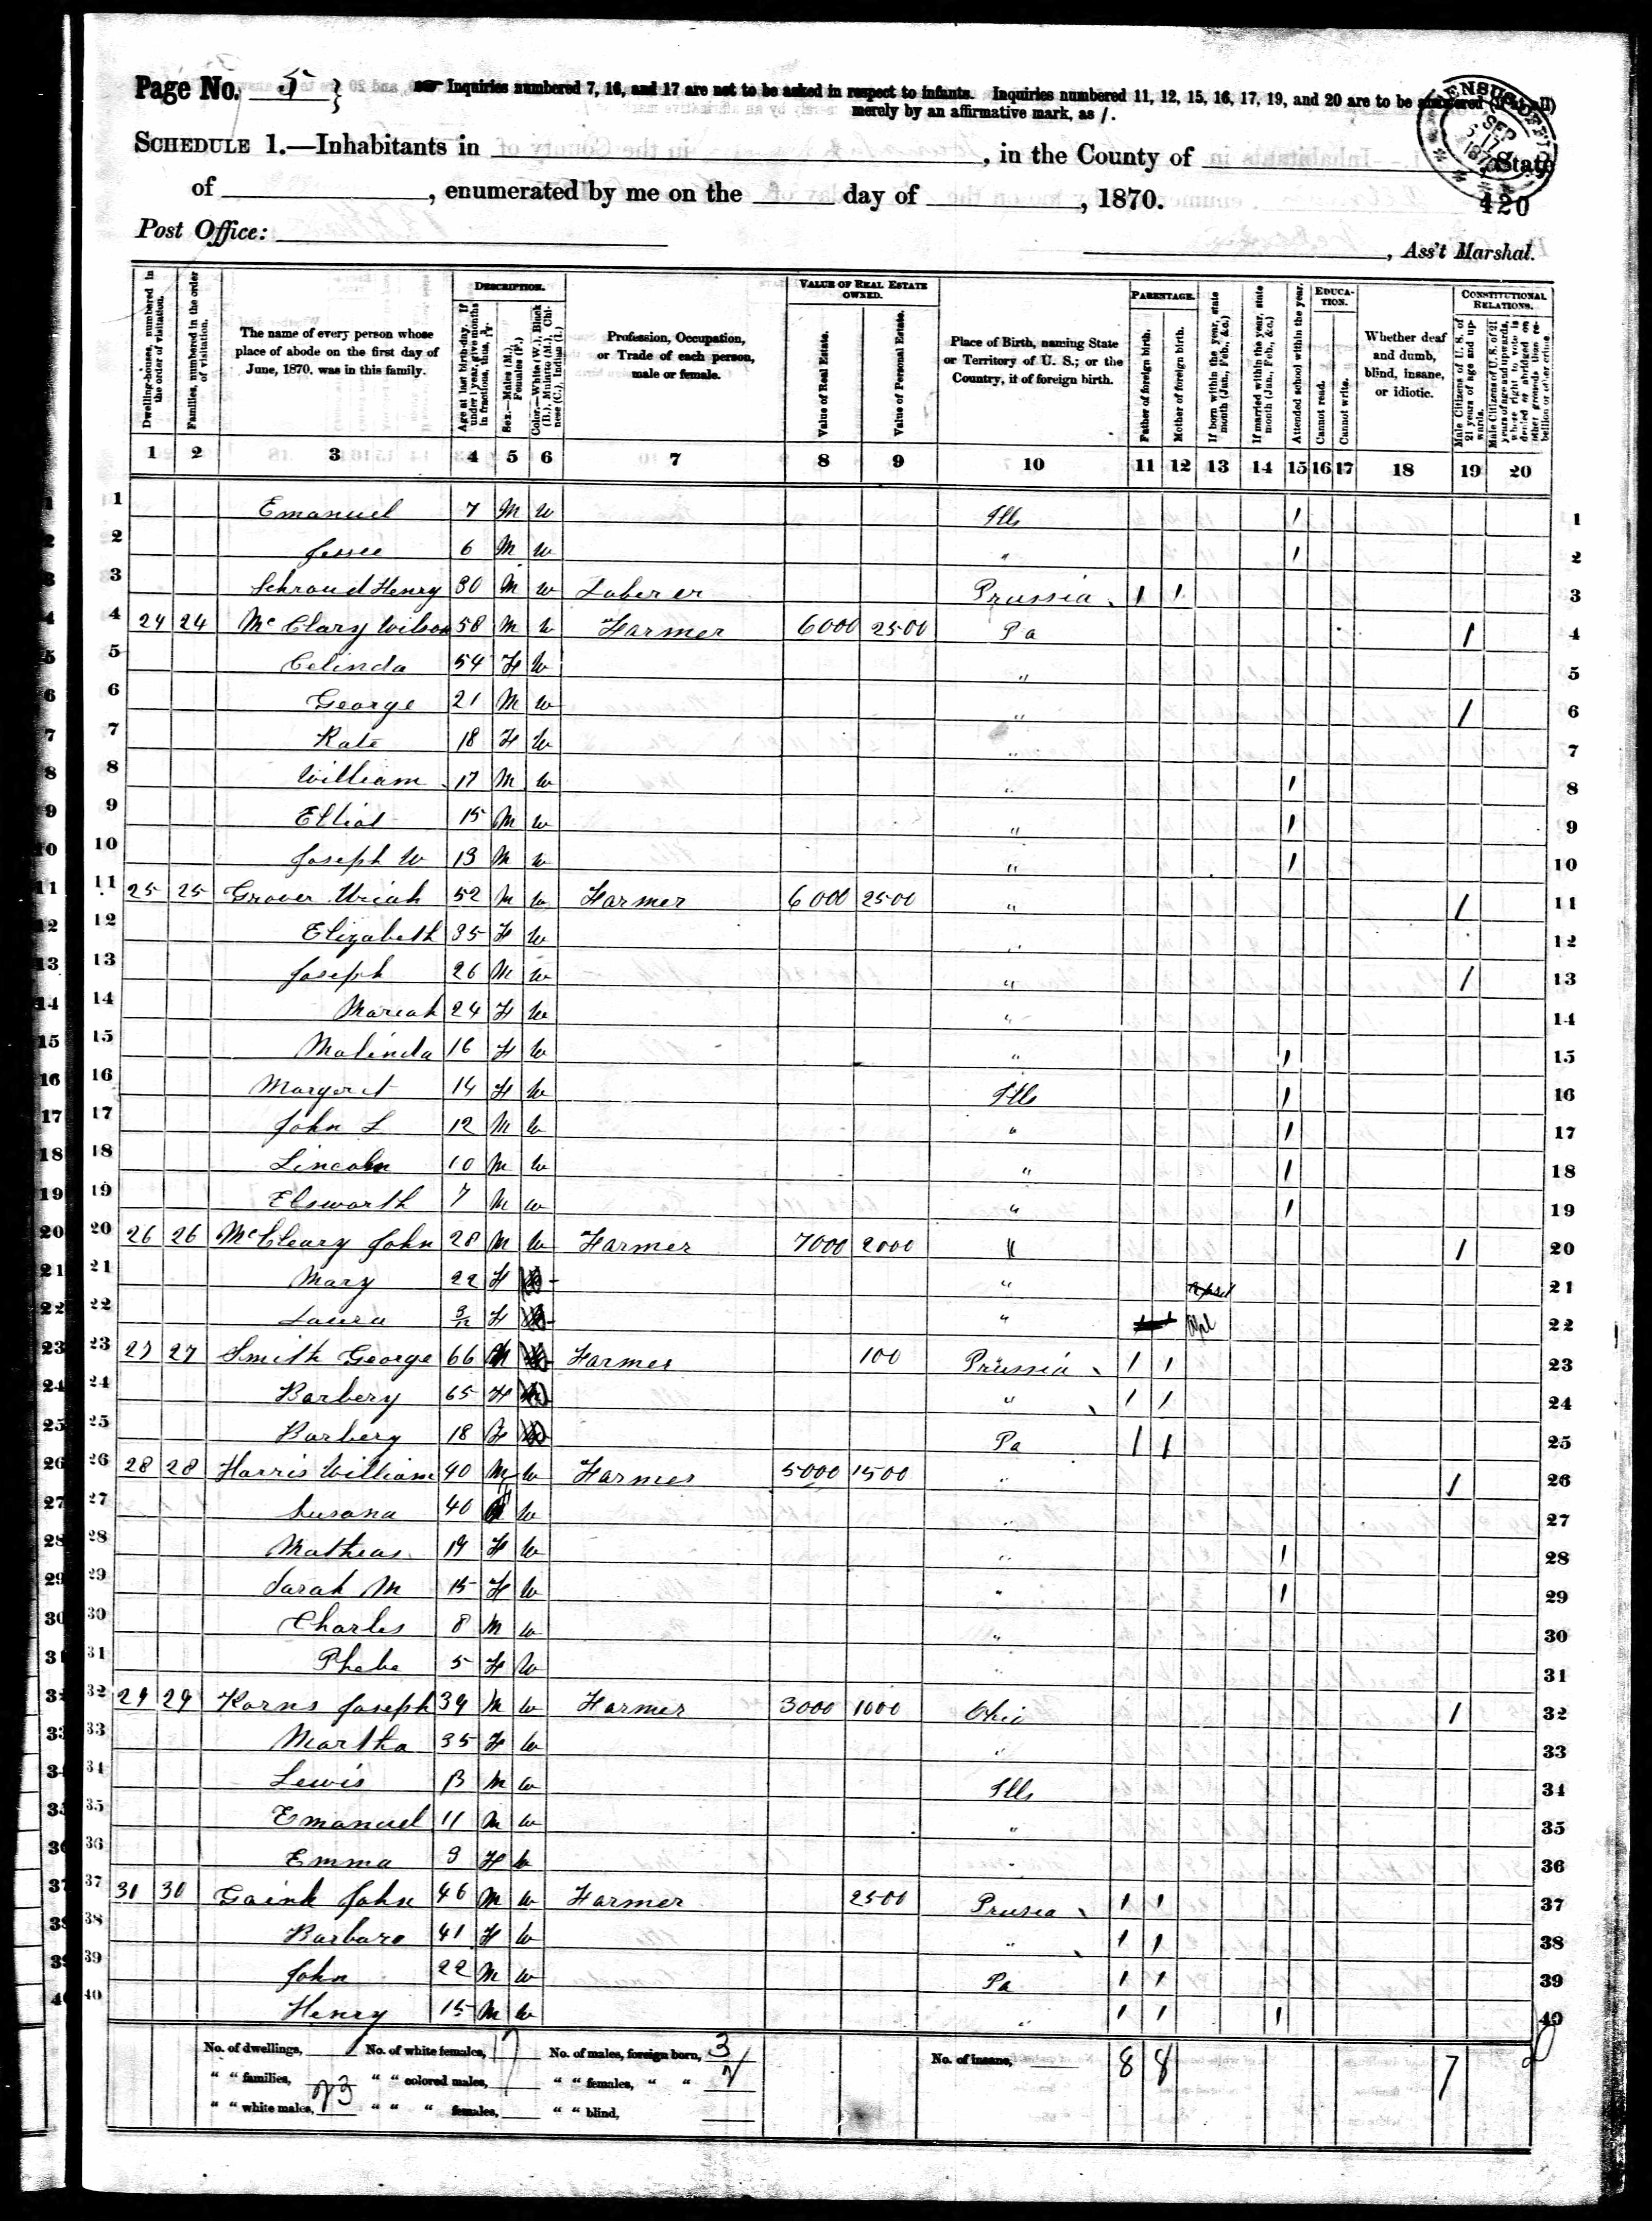 Page No. 5 } Inquiries numbered 7, 16, and 17 are not to be asked in respect to infants. Inquiries numbered 11, 12, 15, 16, 17, 19, and 20 are to be answered (if at all)
merely by an affirmative mark, as /.
CENSUS OFFICE SEP 17 1870
SCHEDULE 1.—Inhabitants in , in the County of , State
of , enumerated by me on the day of , 1870.
420
Post Office:
, Ass't Marshal.
Dwelling-houses, numbered in the order of visitation.
Families, numbered in the order of visitation.
The name of every person whose place of abode on the first day of June, 1870, was in this family.
DESCRIPTION.
Age at last birth-day. If under 1 year, give months in fractions, thus, 3/12.
Sex.—Males (M.), Females (F.)
Color.—White (W.), Black (B.), Mulatto (M.), Chinese (C.), Indian (I.)
Profession, Occupation, or Trade of each person, male or female.
VALUE OF REAL ESTATE OWNED.
Value of Real Estate.
Value of Personal Estate.
Place of Birth, naming State or Territory of U. S.; or the Country, if of foreign birth.
PARENTAGE.
Father of foreign birth.
Mother of foreign birth.
If born within the year, state month (Jan., Feb., &c.)
If married within the year, state month (Jan., Feb., &c.)
Attended school within the year.
EDUCATION.
Cannot read.
Cannot write.
Whether deaf and dumb, blind, insane, or idiotic.
CONSTITUTIONAL RELATIONS.
Male Citizens of U. S. of 21 years of age and upwards.
Male Citizens of U. S. of 21 years of age and upwards, whose right to vote is denied or abridged on other grounds than rebellion or other crime.
1 2 3 4 5 6 7 8 9 10 11 12 13 14 15 16 17 18 19 20
1 Emanuel 7 M W Ills / 1
2 Jesse 6 M W " / 2
3 Schroud Henry 30 M W Laberer Prussia / / 3
4 24 24 McClary Wilson 58 M W Farmer 6000 2500 Pa / 4
5 Celinda 54 F W " 5
6 George 21 M W " / 6
7 Kate 18 F W " 7
8 William 17 M W " / 8
9 Elliot 15 M W " / 9
10 Joseph W 13 M W " / 10
11 25 25 Grover Uriah 52 M W Farmer 6000 2500 " / 11
12 Elizabeth 35 F W " 12
13 Joseph 26 M W " / 13
14 Mariah 24 F W " 14
15 Malinda 16 F W " / 15
16 Margaret 14 F W Ills / 16
17 John L 12 M W " / 17
18 Lincoln 10 M W " / 18
19 Elsworth 7 M W " / 19
20 26 26 McCleary John 28 M W Farmer 7000 2000 " / 20
21 Mary 22 F W " April 21
22 Laura 3/12 F W " Apl 22
23 27 27 Smith George 66 M W Farmer 100 Prussia / / 23
24 Barbery 65 F W " / / 24
25 Barbery 18 F W Pa / / 25
26 28 28 Harris William 40 M W Farmer 5000 1500 " / 26
27 Susana 40 F W " 27
28 Matheas 19 F W " / 28
29 Sarah M 15 F W " / 29
30 Charles 8 M W " 30
31 Phebe 5 F W " 31
32 29 29 Korns Joseph 39 M W Farmer 3000 1000 Ohio / 32
33 Martha 35 F W " 33
34 Lewis 13 M W Ills 34
35 Emanuel 11 M W " 35
36 Emma 9 F W " 36
37 31 30 Gaink John 46 M W Farmer 2500 Prusia / / 37
38 Barbara 41 F W " / / 38
39 John 22 M W Pa / / 39
40 Henry 15 M W " / / / 40
No. of dwellings, No. of white females, 17 No. of males, foreign born, 3 No. of insane, 8 8 7
" " families, " " colored males, " " females, " " 2
" " white males, 23 " " " females, " " blind,